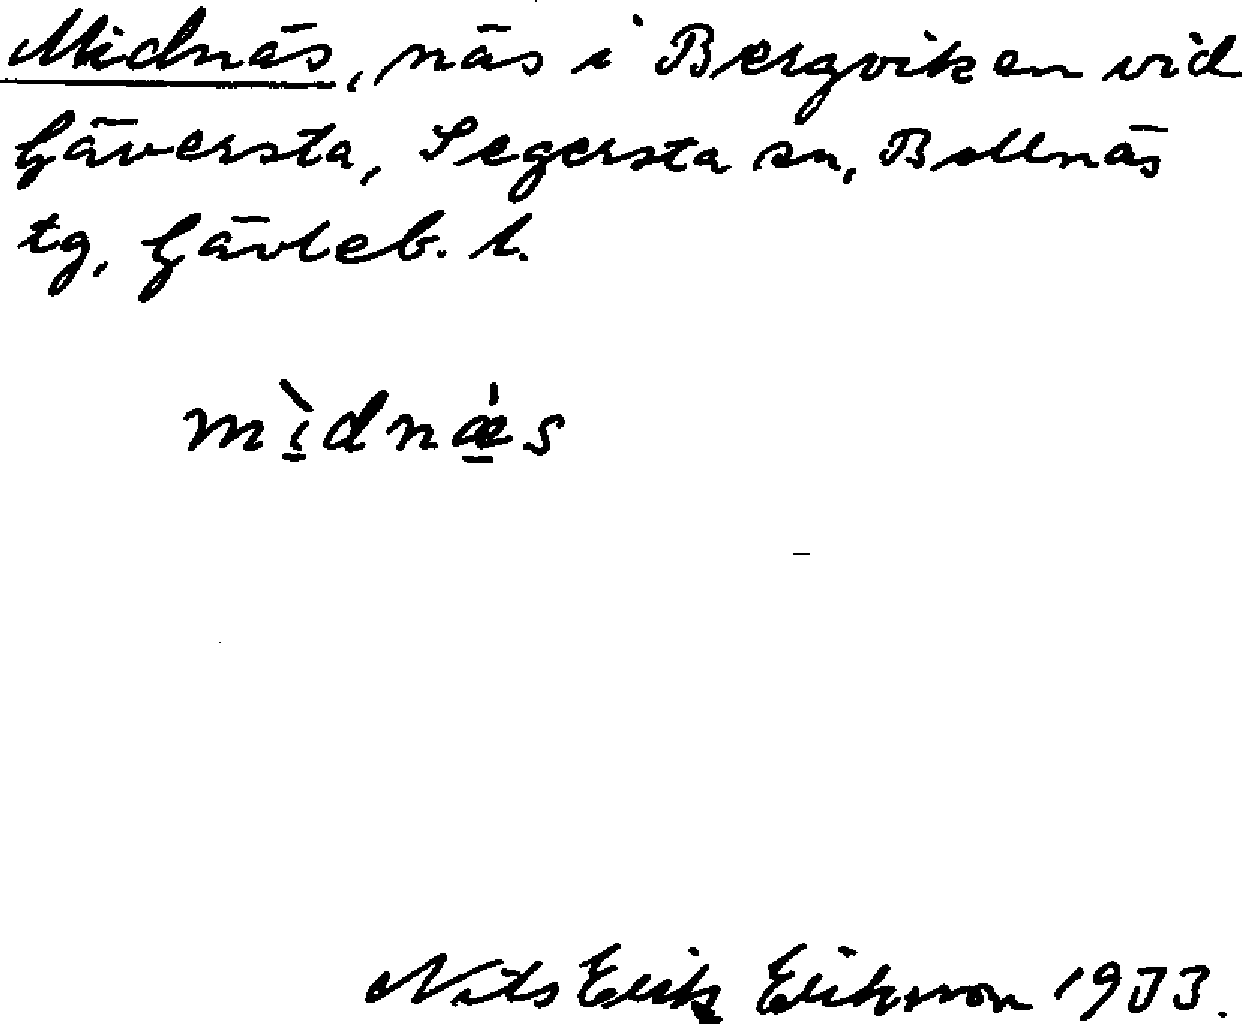 Midnäs, näs i Bergviken vid
Gäversta, Segersta sn, Bollnäs
tg, Gävleb. l.
mì̱dnǽ̱s
Nils Erik Eriksson 1933.